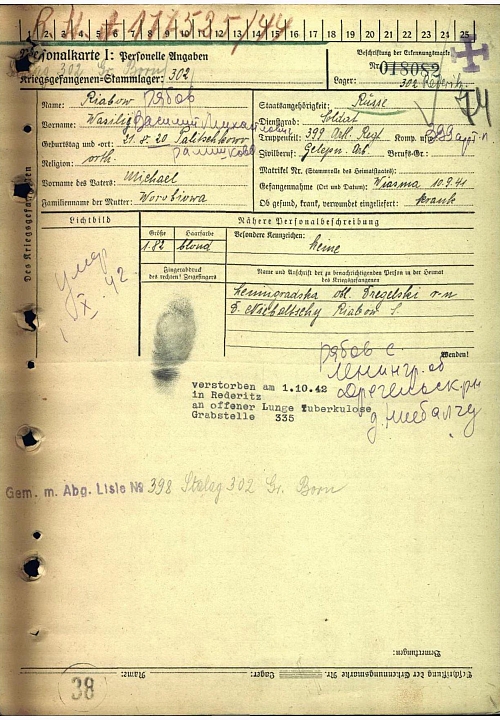 R.K. + 177525/44
1 2 3 4 5 6 7 8 9 10 11 12 13 14 15 16 17 18 19 20 21 22 23 24 25
Personalkarte I: Personelle Angaben
Kriegsgefangenen-Stammlager: 302
Beschriftung der Erkennungsmarke
Nr. 018082
Lager: 302 Rederitz
74
Name: Riabow Рябов
Vorname: Wasilij Василий Михайлович
Geburtstag und -ort: 21.8.20 Palitschkowo
Religion: orth.
Vorname des Vaters: Michael
Familienname der Mutter: Worobiowa
Staatsangehörigkeit: Russe
Dienstgrad: Soldat
Truppenteil: 399 Art. Regt Komp. usw.: 399 арт.п
Zivilberuf: Berufs-Gr.:
Matrikel Nr. (Stammrolle des Heimatstaates):
Gefangennahme (Ort und Datum): Wiasma 10.9.41
Ob gesund, krank, verwundet eingeliefert: krank
Des Kriegsgefangenen
Lichtbild
Nähere Personalbeschreibung
Größe Haarfarbe
1.82 blond
Besondere Kennzeichen:
keine
Fingerabdruck
des rechten! Zeigefingers
Name und Anschrift der zu benachrichtigenden Person in der Heimat
des Kriegsgefangenen
Leningradska obl. Dregelski r-n
D. Niebaltschy Riabow S.
умер
1 X. 42
Wenden!
Рябов С
Ленингр. об
Дрегельск. рн
д. Ниебалчу
verstorben am 1.10.42
in Rederitz
an offener Lunge Tuberkulose
Grabstelle 335
Gem. m. Abg. Liste № 398 Stalag 302 Gr. Born
Bemerkungen:
Beschriftung der Erkennungsmarke Nr. Lager: Name:
38